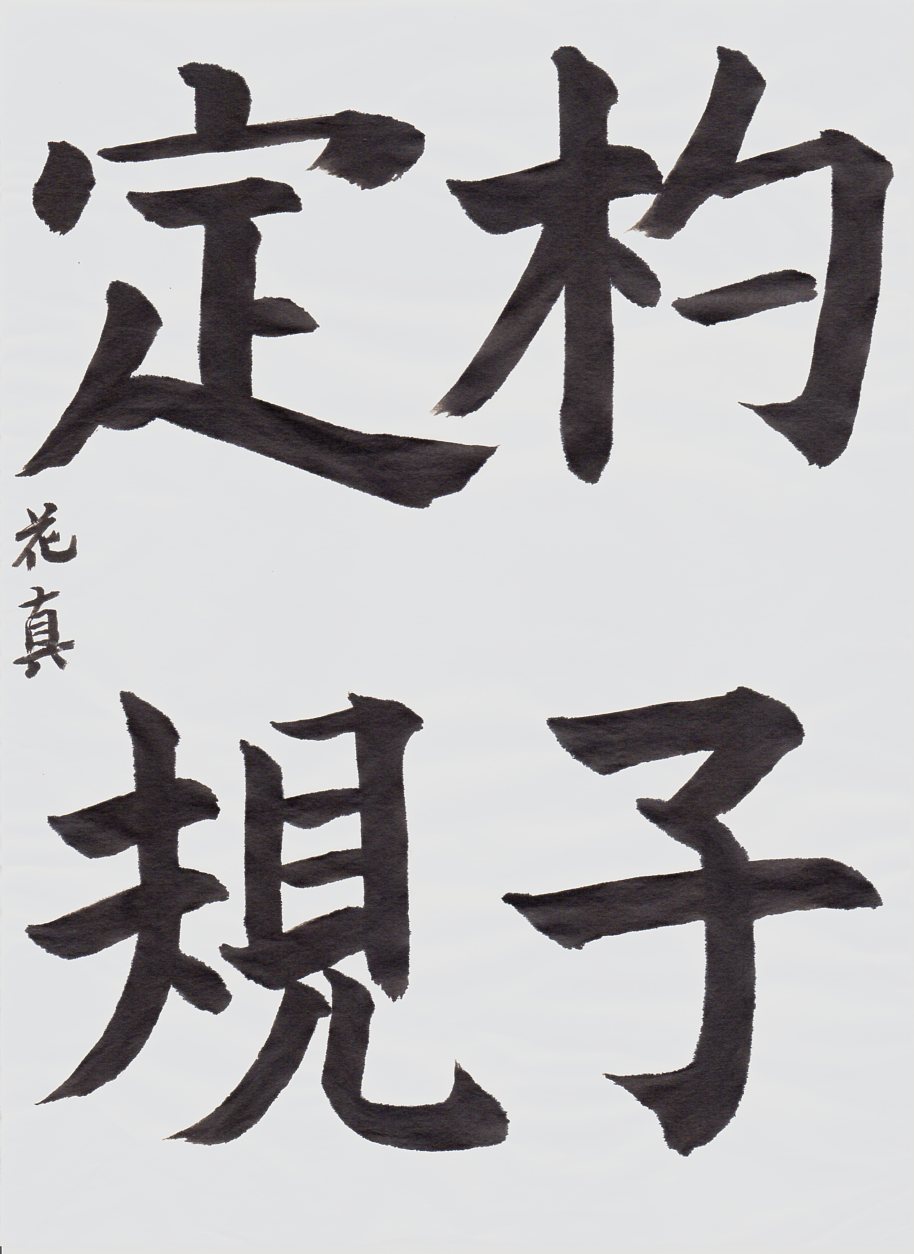 杓子
定規
花真